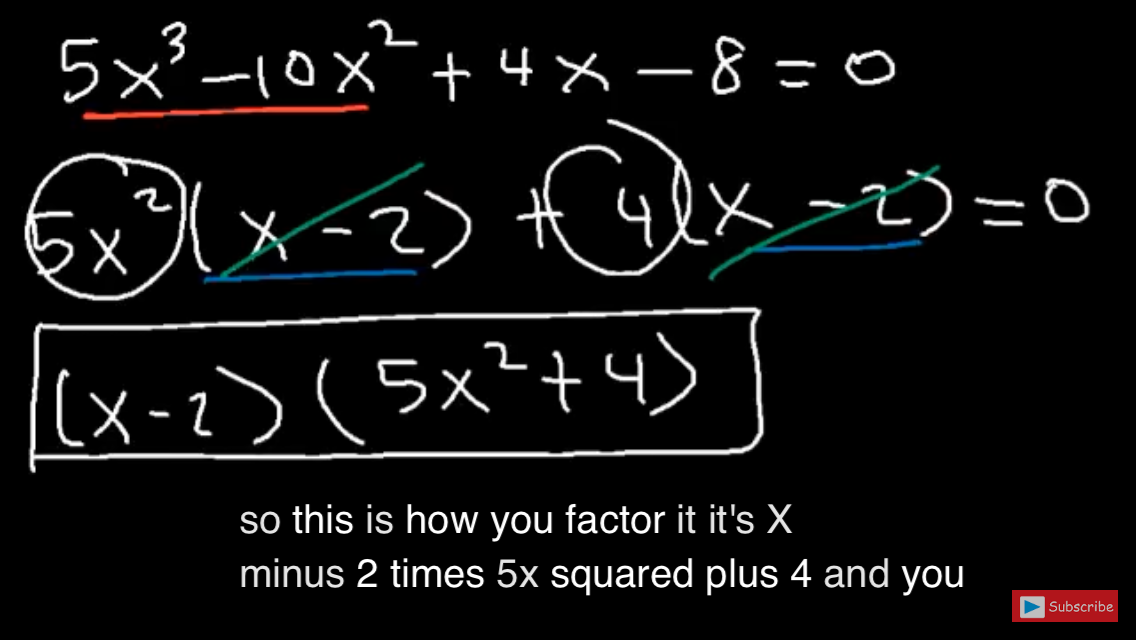 5x³ − 10x² + 4x − 8 = 0
5x² (x − 2) + 4 (x − 2) = 0
(x − 2) (5x² + 4)
so this is how you factor it it's X
minus 2 times 5x squared plus 4 and you
Subscribe